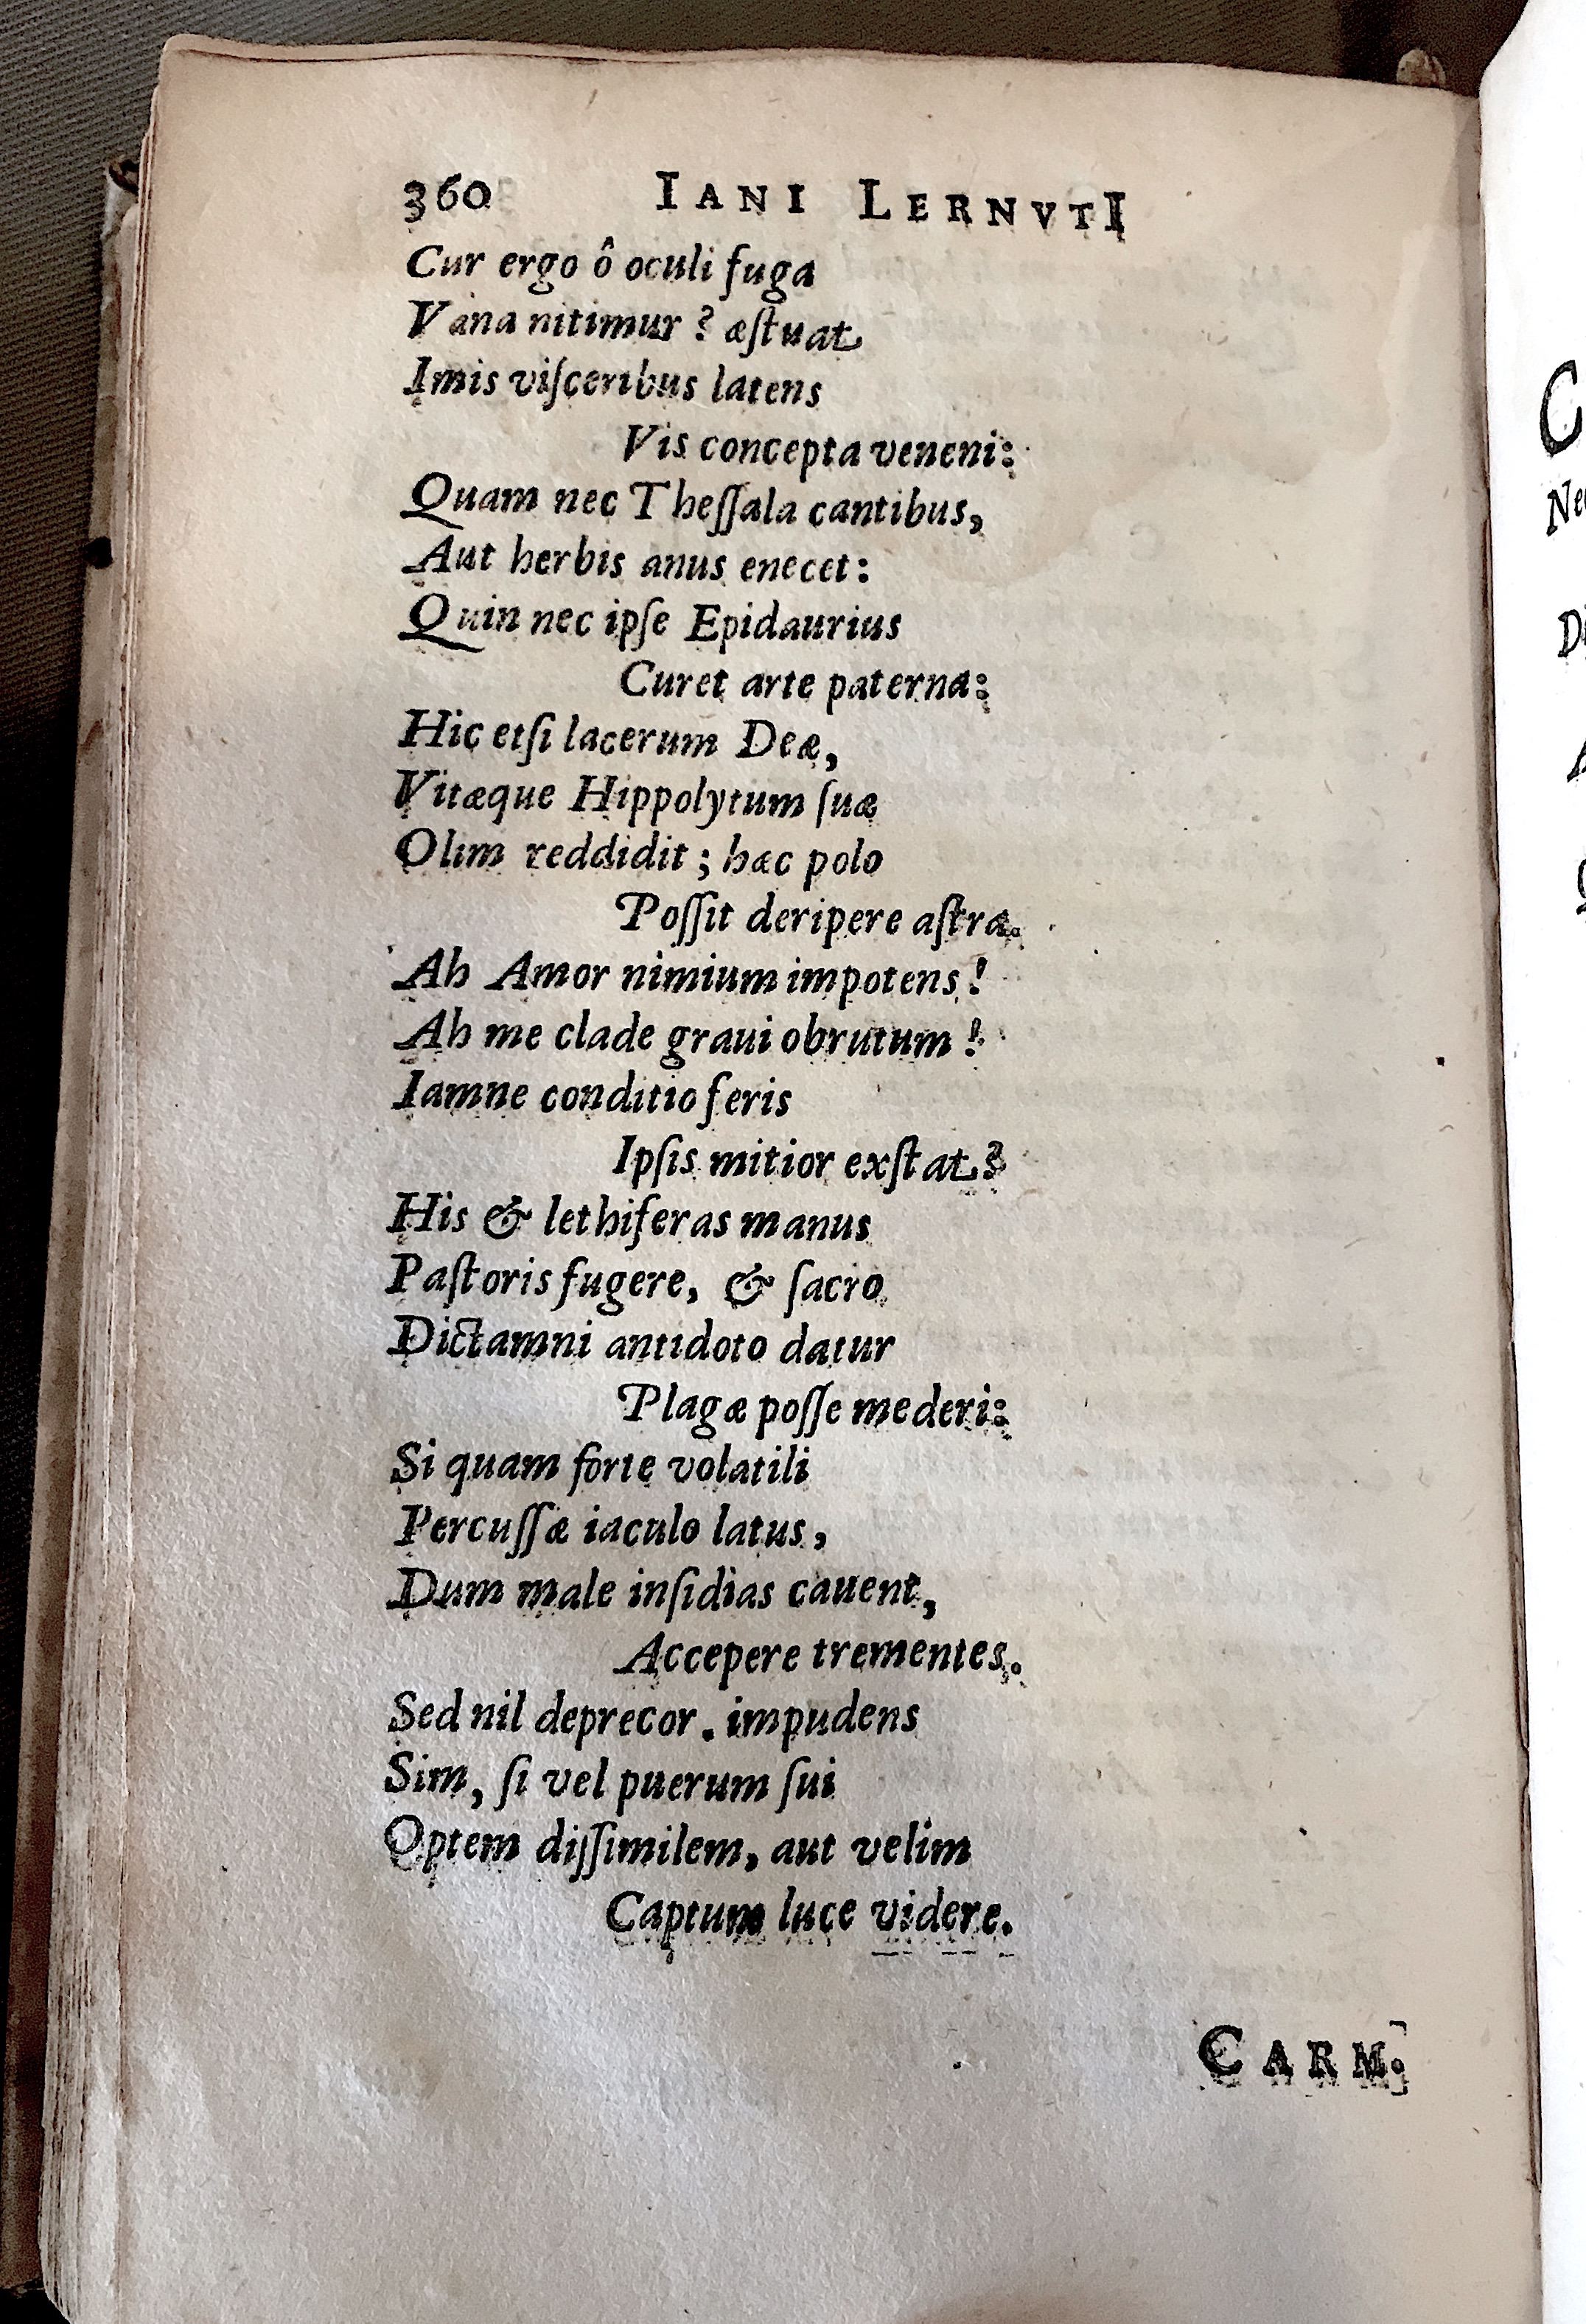 360 IANI LERNVTI
Cur ergo ô oculi fuga
Vana nitimur? æſtuat
Imis viſceribus latens
Vis concepta veneni:
Quam nec Theſſala cantibus,
Aut herbis anus enecet:
Quin nec ipſe Epidaurius
Curet arte paterna:
Hic etſi lacerum Deæ,
Vitæque Hippolytum ſuæ
Olim reddidit; hæc polo
Poſſit deripere aſtra.
Ah Amor nimium impotens!
Ah me clade graui obrutum!
Iamne conditio feris
Ipſis mitior exſtat?
His & lethiferas manus
Paſtoris fugere, & ſacro
Dictamni antidoto datur
Plagæ poſſe mederi:
Si quam forte volatili
Percuſſæ iaculo latus,
Dum male inſidias cauent,
Accepere trementes.
Sed nil deprecor. impudens
Sim, ſi vel puerum ſui
Optem diſſimilem, aut velim
Captum luce videre.
CARM.
C
Ne
Di